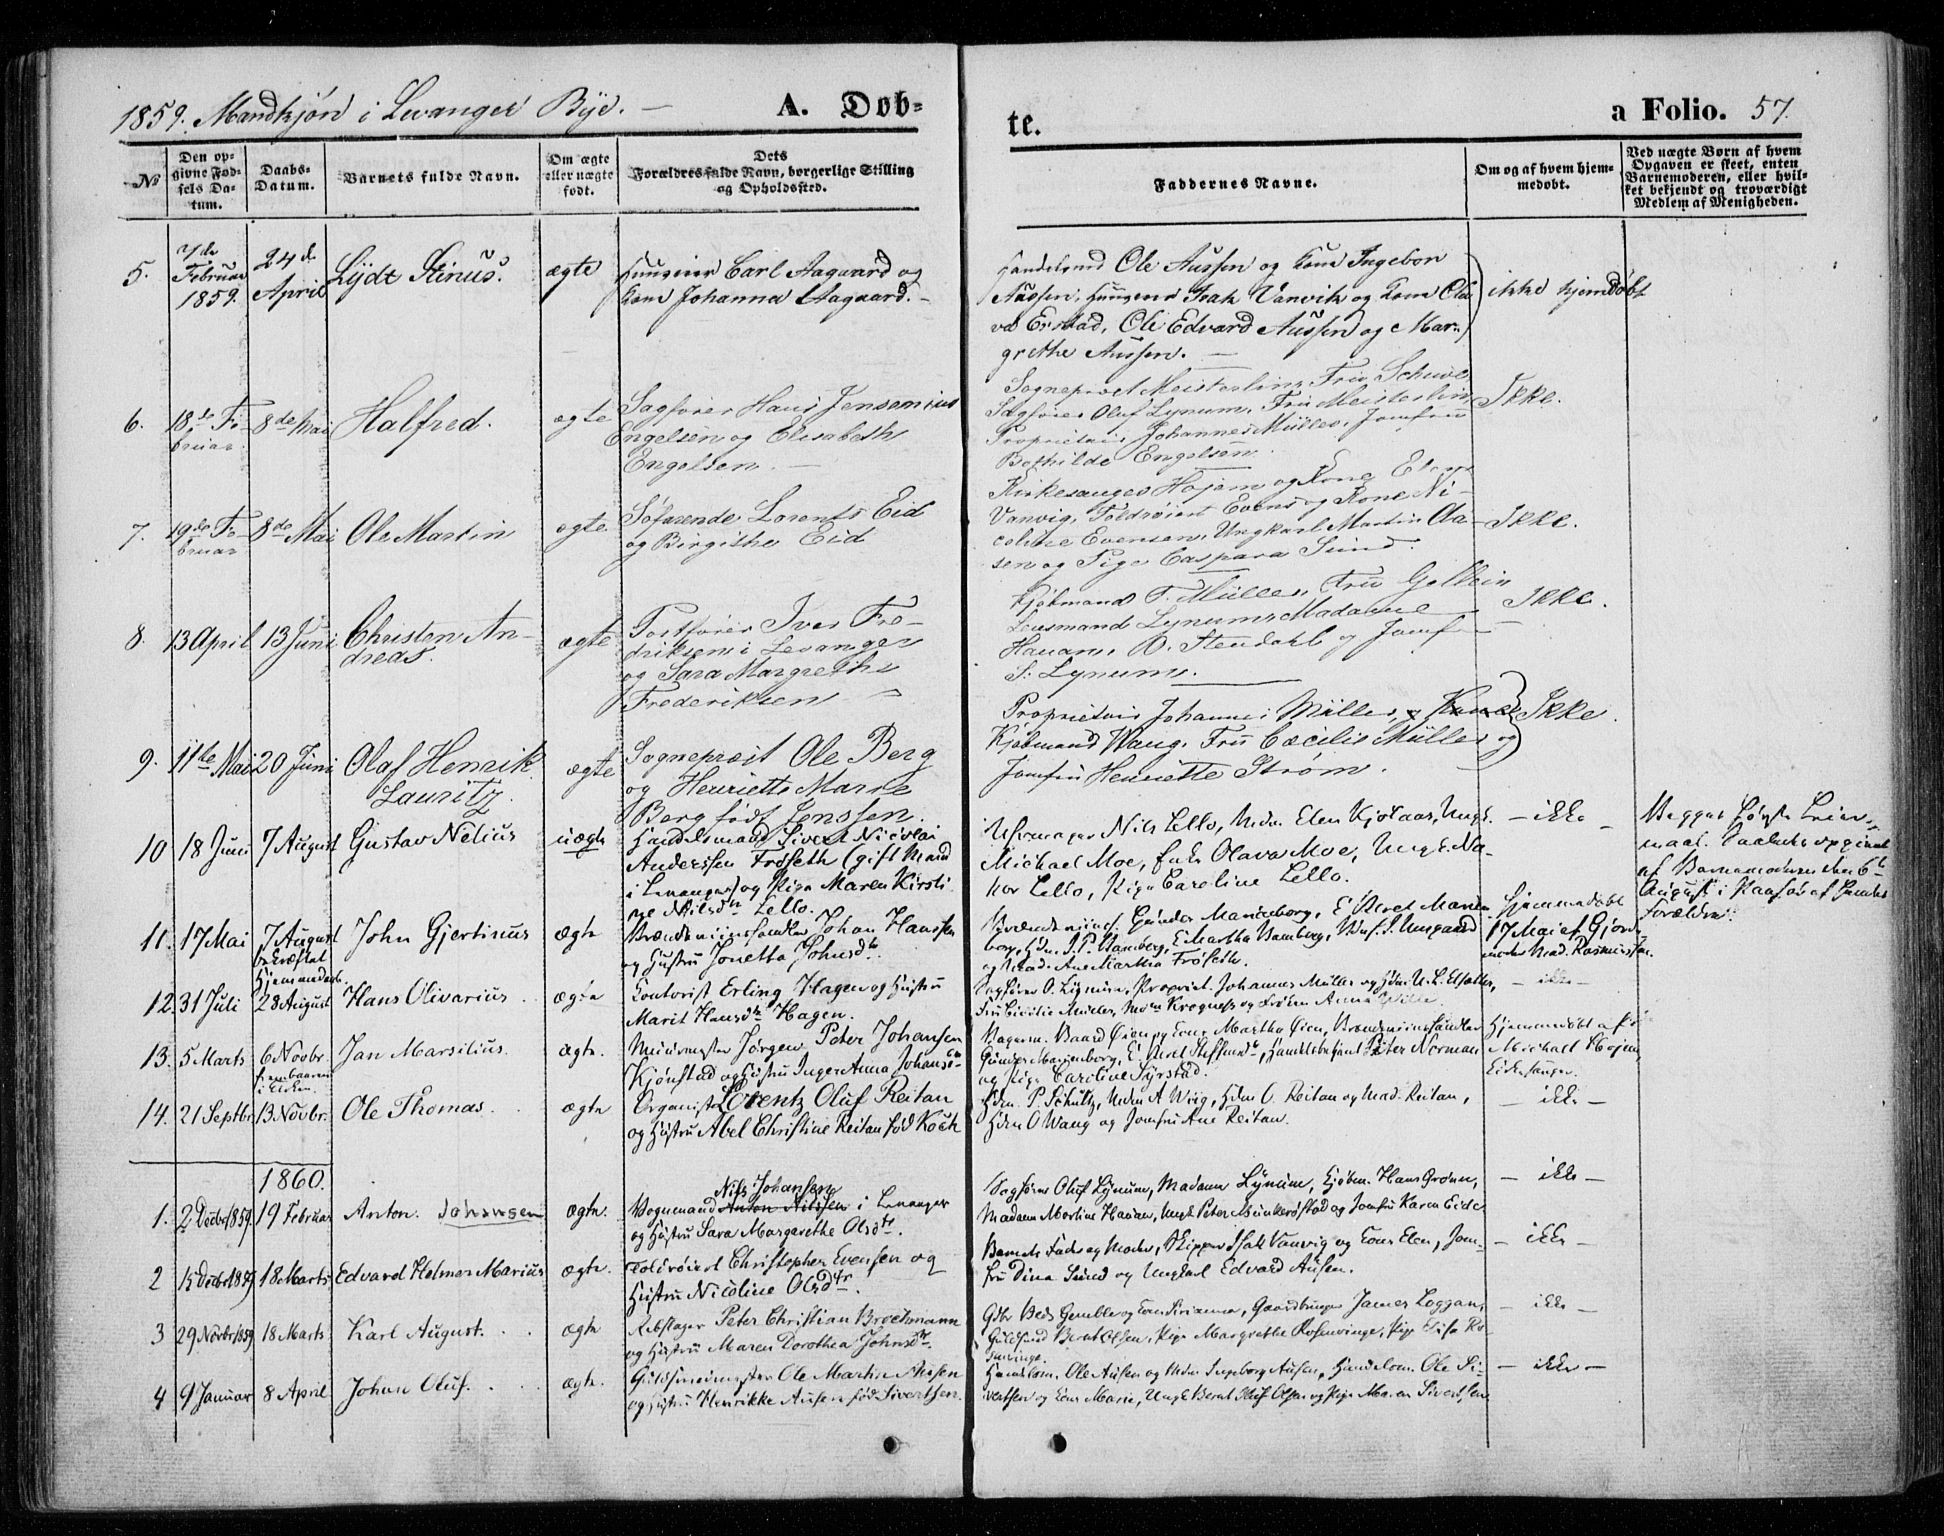 1859. Mandkjøn i Levanger Bye. — A. Døb-
te. a Folio. 57.
No
Den op-
givne Fød-
sels Da-
tum.
Daabs-
Datum.
Barnets fulde Navn.
Om ægte
eller uægte
født.
Dets
Forældres fulde Navn, borgerlige Stilling
og Opholdssted.
Faddernes Navne.
Om og af hvem hjem-
medøbt.
Ved uægte Børn af hvem
Opgaven er skeet, enten
Barnemoderen, eller hvil-
ket bekjendt og troværdigt
Medlem af Menigheden.
5.
7de
Februar
1859.
24d
April
Lydt Stinus.
ægte
Huuseier Carl Aagaard og
Kone Johanna Aagaard. -
Handelsmd Ole Aussen og Kone Ingebor
Aussen, Huuseier Isak Vanvik og Kone Ola
va Erstad, Ole Edvard Aussen og Mar-
grethe Aussen. —
ikke hjemdøbt
6.
18de Fe-
bruar
8de Mai
Halfred.
ægte
Sagfører Hans Jensenius
Engelsen og Elisabeth
Engelsen. —
Sogneprest Meisterlin, Fru Schive
Sagfører Oluf Lynum, Fru Meisterlin
Proprietair Johannes Müller, Jomfru
Bothilde Engelsen.
Ikke.
7.
19de Fe-
bruar
8de Mai
Ole Martin
ægte
Søfarende Lorents Eid
og Birgithe Eid
Kirkesanger Hojem og Kone Elen
Vanvig, Toldroiert Evens og Kone Ni-
coline Evensen, Ungkarl Martin Aa-
sen og Pige Caspara Sund.
Ikke.
8.
13 April
13 Juni
Christen An-
dreas.
ægte
Postfører Iver Fre-
driksen i Levanger
og Sara Margrethe
Frederiksen —
Kjøbmand F. Müller, Fru Gollein
Lensmand Lynum, Madame
Hanam, O. Stendahl og Jomf
S. Lynum.
Ikke.
9.
11te Mai
20 Juni
Olaf Henrik
Lauritz.
ægte
Sogneprest Ole Berg
og Henriette Marie
Berg født Jenssen.
Proprietair Johannes Müller,
Kjøbmand Wang, Fru Cæcilie Müller og
Jomfru Henriette Strøm.
Ikke.
10
18 Juni
7 August
Gustav Nelius
uægte
Handelsmand Sivert Nicolai
Anderssen Frøseth (gift Mand
i Levanger) og Pige Maren Kirsti-
ne Nilsdtr Lello.
Nils Lello, Mdm Elen Kjølaas, Ungk.
Michael Moe, Enke Olava Moe, Ungk. Na-
Lello, Pige Caroline Lello.
— ikke —
Begges første Leier-
maal. Saaledes opgivet
af Barnemoderen den 6te
August i Paahør af hendes
Forældre.
11.
17 Mai
7 August
bekræftet
Hjemmedaab.
John Gjertinus
ægte
Brændeviinshandler Johan Hanssen
og Hustru Jonetta Johnsdtr
Brændeviinsh. Gunder Marienborg, E. Beret Marien
borg, Hdm. J. P. Bamberg, E. Martha Bamberg,
og Mad. Ane Martha Frøseth.
Hjemmedøbt
17 Mai af Gjord-
moder Mad. Rasmussen.
12.
31 Juli
28 August
Hans Olivarius
ægte
Contorist Erling Hagen og Hustru
Marit Hansdtr Hagen.
Sagfører O. Lynum, Propriet. Johannes Müller og Hdm.
Fru Cicilie Müller, Mdm Krogness og Frøken Anna
— ikke —
13.
5 Marts
6 Novbr.
frembaaren
i Kirken.
Jan Marsilius.
ægte
Muurmester Jørgen Peter Johansen
Kjønstad og Hustru Inger Anna Johans-
Bagerm. Baard Øien og Kone Martha Øien, Brændeviinshandler
Gunder Marienborg, Peter Norman
og Pige Caroline Syrstad.
Hjemmedøbt af
Michael Hojem
Kirkesanger.
14.
21 Septbr
13 Novbr.
Ole Thomas.
ægte
Organist Lorentz Oluf Reitan
og Hustru Abel Christine Reitan fød Koch
Hdm. P. Schultz, Mdm A. Wiig, Hdm O. Reitan og Mad. Reitan,
Hdm O Wang og Jomfru Ane Reitan.
— ikke —
1860.
1.
2 Decbr 1859.
19 Februar
Anton. Johansen
ægte.
Nils Johansen
Vognmand Anton Nilssen i Levanger
og Hustru Sara Margarethe Olsdtr.
Sagfører Oluf Lynum, Madame Lynum, Kjøbm. Hans Grønn,
Madame Martine Hanem, Ungk Peter Munkerøstad og Jomfru Karen Eide
— ikke —
2
15 Decbr 1859
18 Marts
Edvard Helmer Marius
ægte.
Toldroiert Christopher Evensen og
Hustru Nicoline Olsdtr.
Barnets Fader og Moder, Skipper Isak Vanvig og Kone Elen, Jom-
fru Dina Sund og Ungkarl Edvard Ausen.
— ikke —
3
29 Novbr 1859
18 Marts
Karl August.
ægte
Rebslager Peter Christian Brochmann
og Hustru Maren Dorothea Johnsdtr.
Gaardbruger James Loggan,
Guldsmd Bernt Olsen, Pige Margrethe Rosenvinge, Pige Elisa Ro-
senvinge.
— ikke —
4
9 Januar
8 April
Johan Oluf.
ægte.
Guldsmedmester Ole Martin Ausen
og Hustru Henrikke Ausen fød Sivertsen.
Handelsm. Ole Ausen og Mdm Ingeborg Ausen, Handelsm. Ole Si-
vertsen og Kone Marie, Ungk Bernt Oluf Olsen og Pige Maren Sivertsen
— ikke —